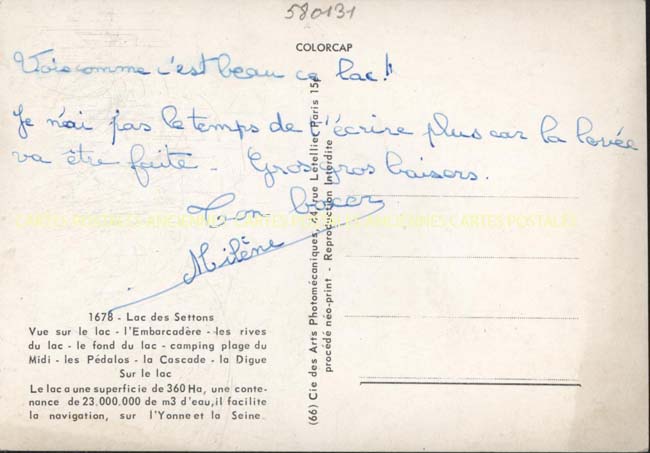 580131
COLORCAP
Vois comme c'est beau ce lac!!
Je n'ai pas le temps de t'écrire plus car la levée
va être faite - Gros gros baisers.
Ton
Milène
CARTES POSTALES ANCIENNES CARTES POSTALES
1678 - Lac des Settons
Vue sur le lac - l'Embarcadère - les rives
du lac - le fond du lac - camping plage du
Midi - les Pédalos - la Cascade - la Digue
Sur le lac
Le lac a une superficie de 360 Ha, une conte-
nance de 23.000.000 de m3 d'eau, il facilite
la navigation, sur l'Yonne et la Seine.
(66) Cie des Arts Photomécaniques, 44, rue Letellier, Paris 15e
procédé néo-print - Reproduction Interdite